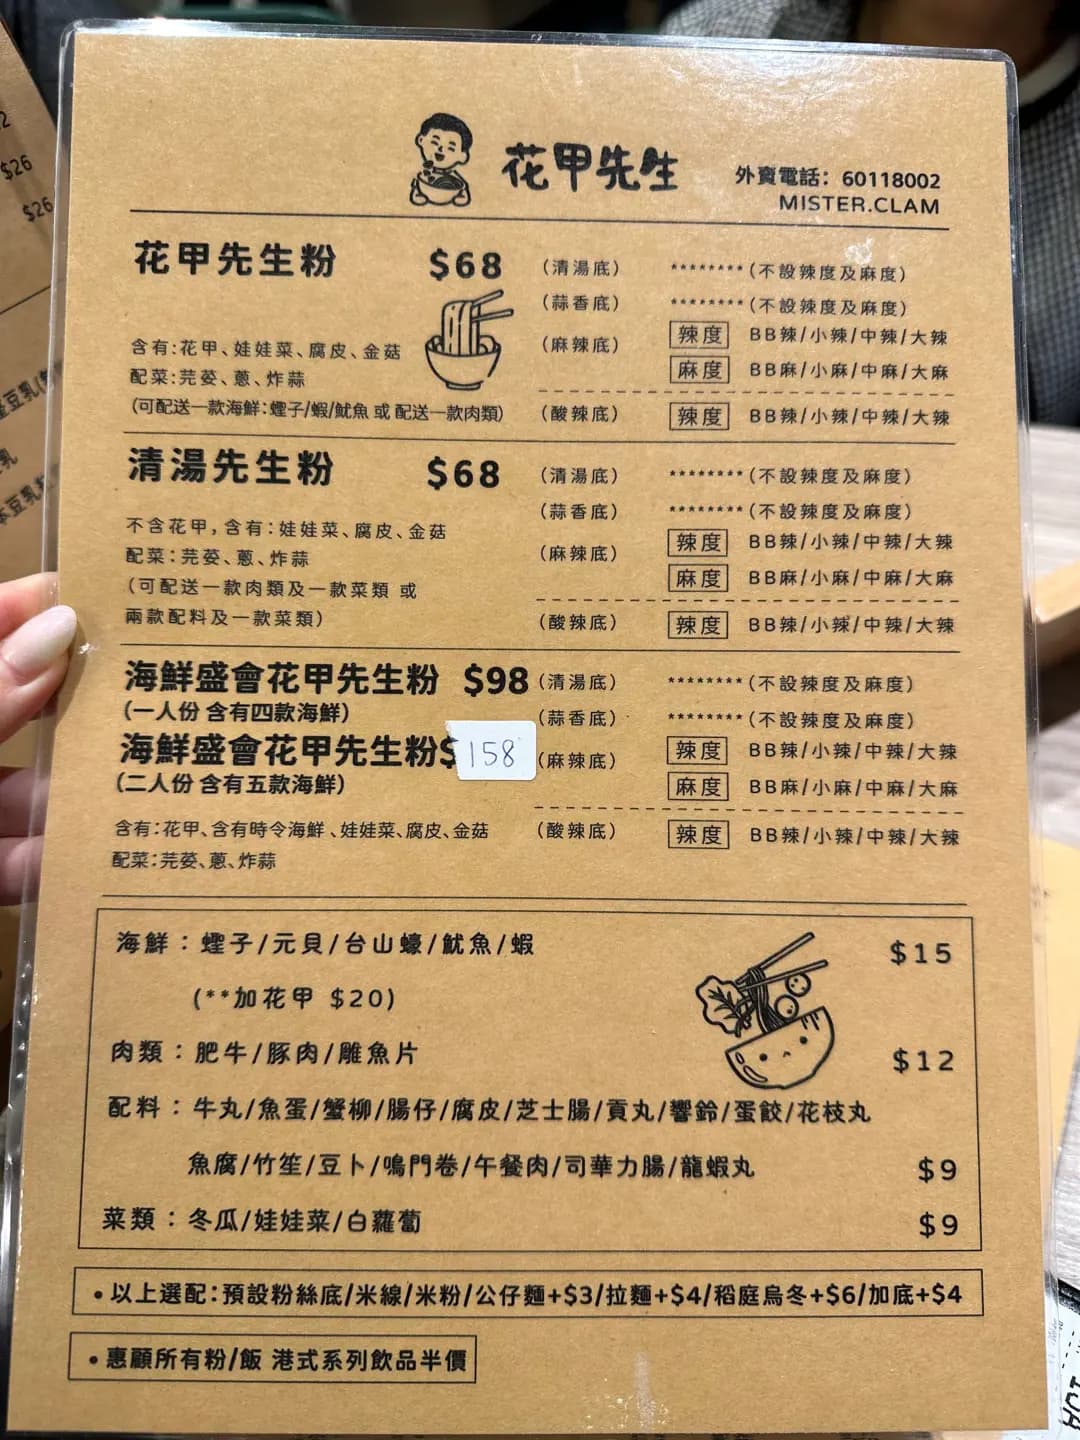 花甲先生
外賣電話：60118002
MISTER.CLAM
花甲先生粉 $68
含有:花甲、娃娃菜、腐皮、金菇
配菜:芫荽、蔥、炸蒜
(可配送一款海鮮:蟶子/蝦/魷魚 或 配送一款肉類)
(清湯底) ********(不設辣度及麻度)
(蒜香底) ********(不設辣度及麻度)
(麻辣底) 辣度 BB辣/小辣/中辣/大辣
麻度 BB麻/小麻/中麻/大麻
(酸辣底) 辣度 BB辣/小辣/中辣/大辣
清湯先生粉 $68
不含花甲,含有:娃娃菜、腐皮、金菇
配菜:芫荽、蔥、炸蒜
(可配送一款肉類及一款菜類 或
兩款配料及一款菜類)
(清湯底) ********(不設辣度及麻度)
(蒜香底) ********(不設辣度及麻度)
(麻辣底) 辣度 BB辣/小辣/中辣/大辣
麻度 BB麻/小麻/中麻/大麻
(酸辣底) 辣度 BB辣/小辣/中辣/大辣
海鮮盛會花甲先生粉 $98
(一人份 含有四款海鮮)
海鮮盛會花甲先生粉$158
(二人份 含有五款海鮮)
含有:花甲、含有時令海鮮、娃娃菜、腐皮、金菇
配菜:芫荽、蔥、炸蒜
(清湯底) ********(不設辣度及麻度)
(蒜香底) ********(不設辣度及麻度)
(麻辣底) 辣度 BB辣/小辣/中辣/大辣
麻度 BB麻/小麻/中麻/大麻
(酸辣底) 辣度 BB辣/小辣/中辣/大辣
海鮮：蟶子/元貝/台山蠔/魷魚/蝦 $15
(**加花甲 $20)
肉類：肥牛/豚肉/雕魚片 $12
配料：牛丸/魚蛋/蟹柳/腸仔/腐皮/芝士腸/貢丸/響鈴/蛋餃/花枝丸
魚腐/竹笙/豆卜/鳴門卷/午餐肉/司華力腸/龍蝦丸 $9
菜類：冬瓜/娃娃菜/白蘿蔔 $9
•以上選配:預設粉絲底/米線/米粉/公仔麵+$3/拉麵+$4/稻庭烏冬+$6/加底+$4
•惠顧所有粉/飯 港式系列飲品半價
$26
$26